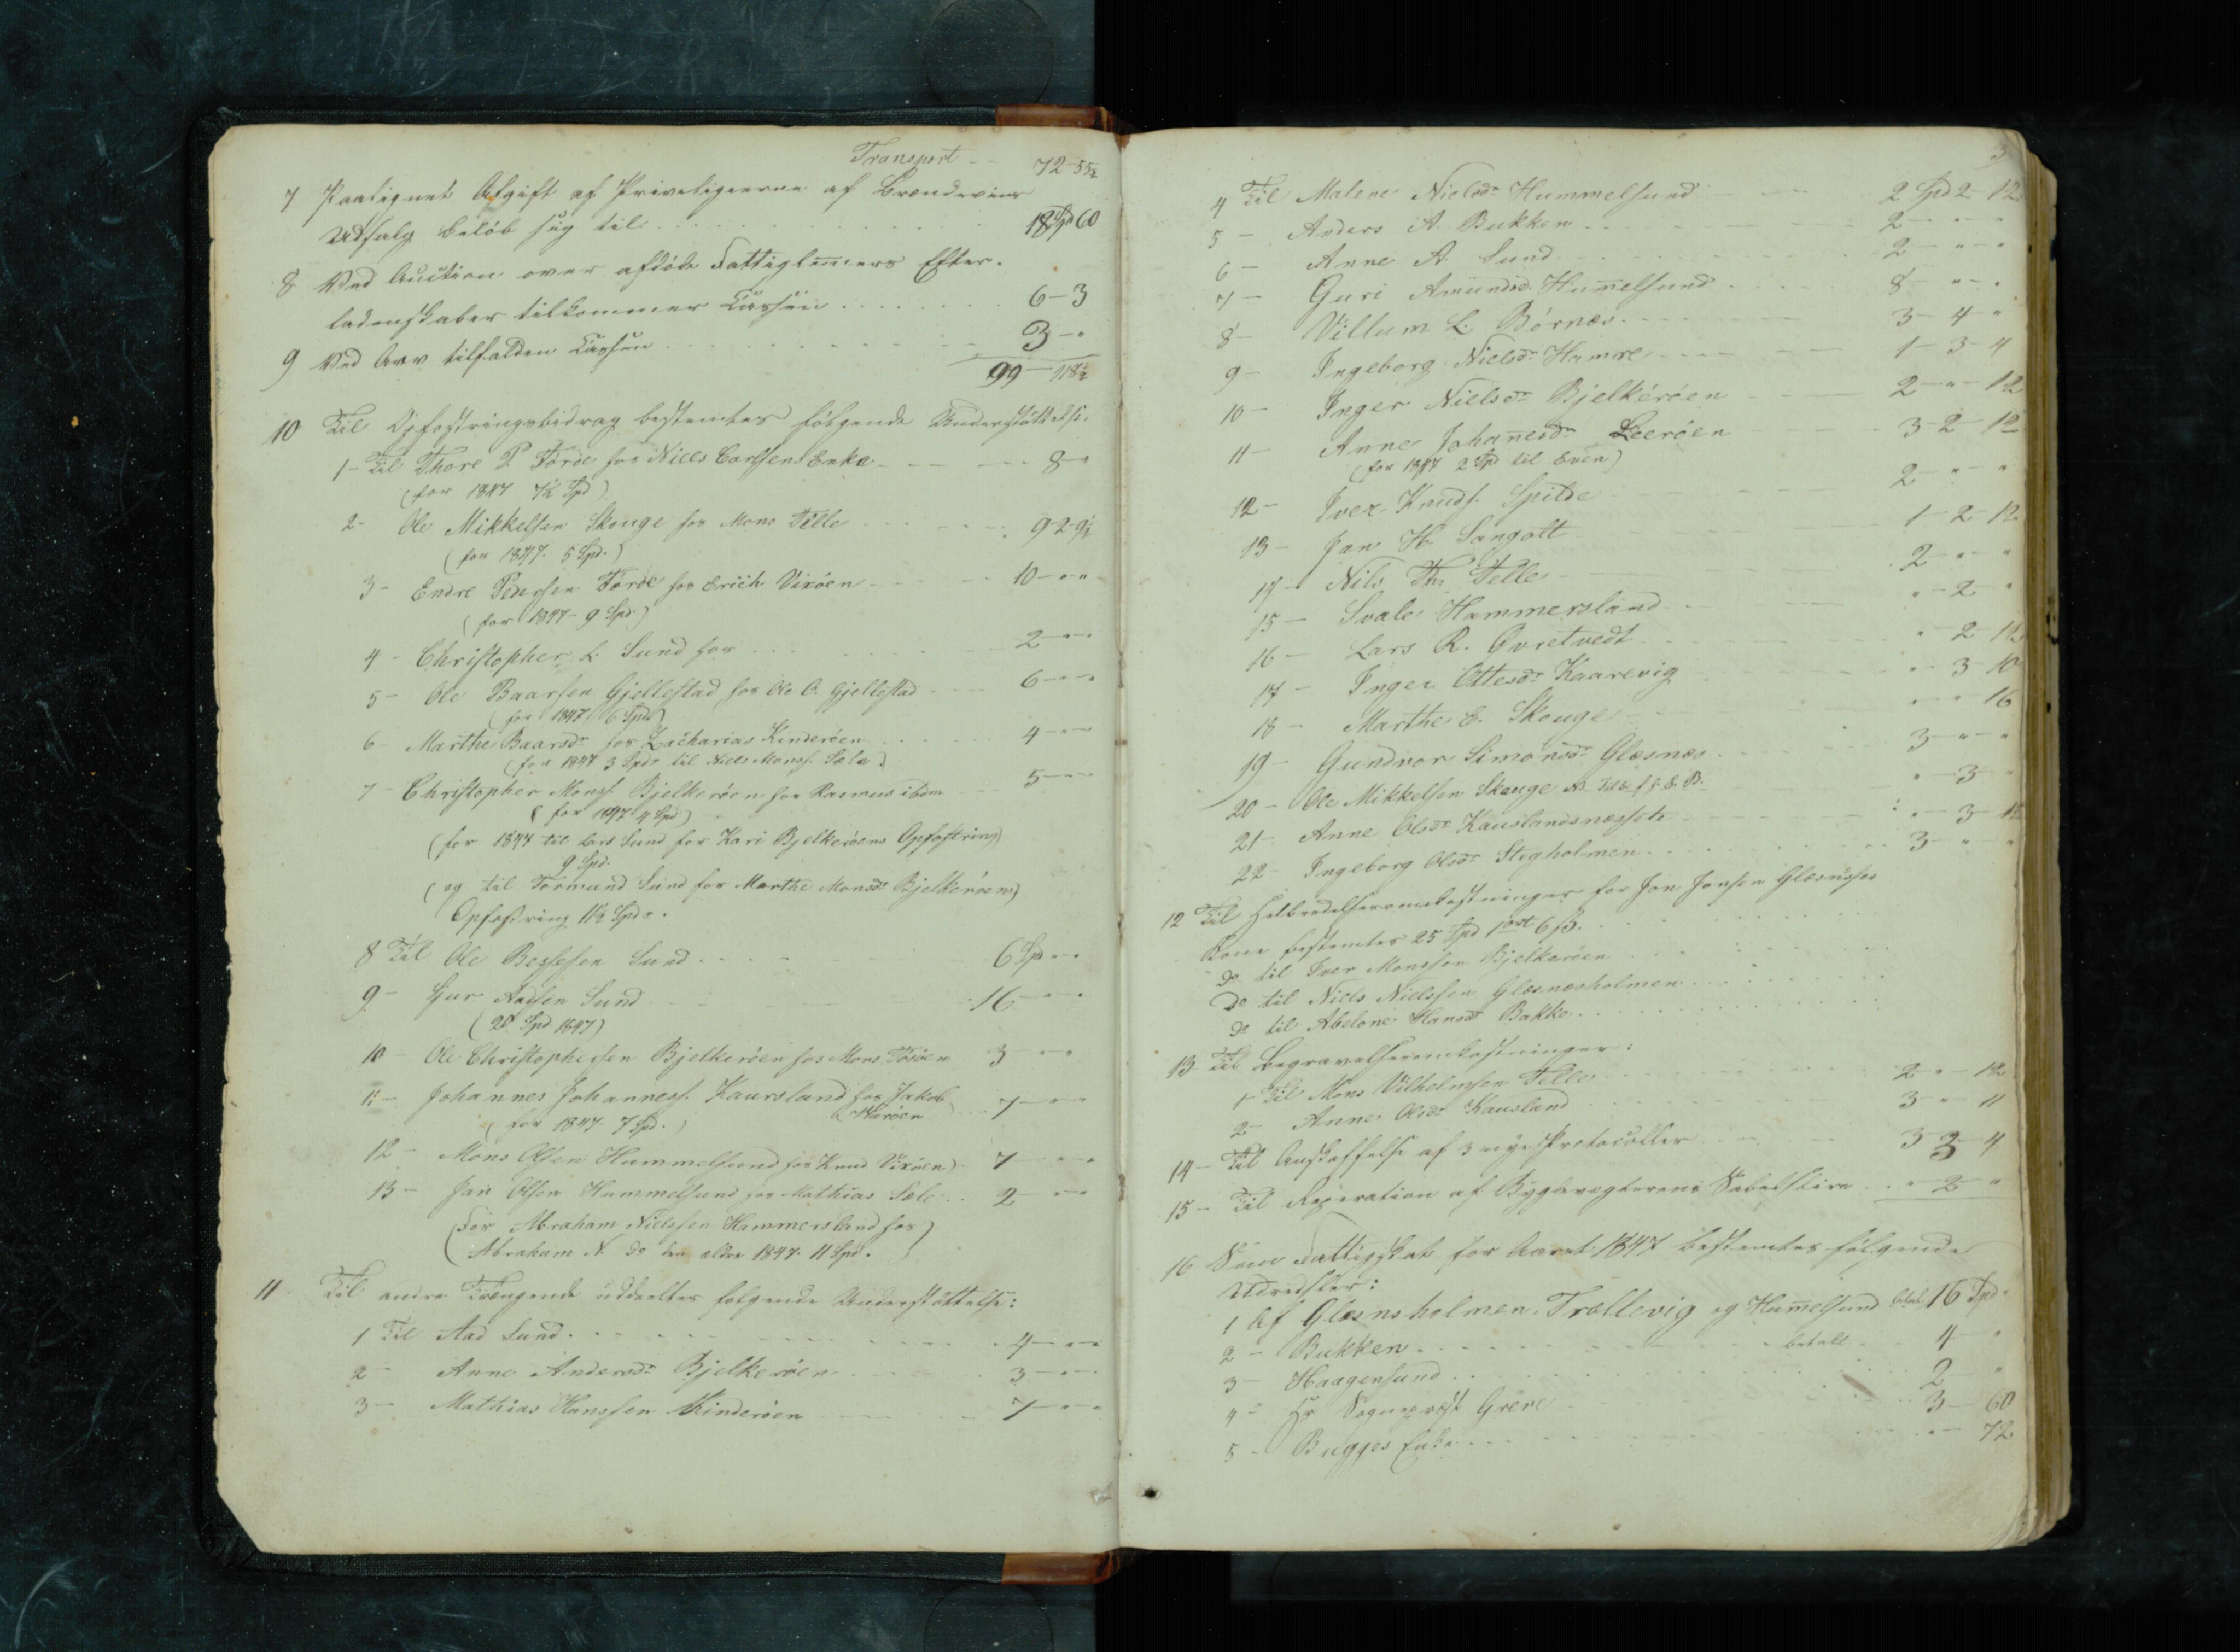 Transport - - 72-55½
7 Paalignet Afgift af Privilegierne af Brændeviins
Udsalg beløb sig til . . . 18 Spd 60
8 Ved Auction over afdöde Fattiglemmers Efter-
ladenskaber tilkommer Cassen . . . 6-3
9 Ved Arv tilfalden Cassen . . . 3-"
99-118½
10 Til Opfostringsbidrag bestemtes følgende Understøttelse.
1- Til Thore P Förde for Niels Carlsens Enke - - - 8-"
(for 1847 7½ Spd)
2- Ole Mikkelsen Skouge for Mons Telle - - - 9-2-9½
(for 1847. 5 Spd.)
3- Endre Pedersen Förde for Erich Vixöen - - - 10-"-"
(for 1847- 9 Spd.)
4- Christopher L. Sund for . . . 2-"-"
5- Ole Baarsen Gjellestad for Ole O. Gjellestad - - 6-"-"
(for 1847 6 Spd)
6- Marthe Baarsdr for Zacharias Kinderöen . . . 4-"-"
(for 1847 3 Spdr til Niels Monss. Sele)
7- Christopher Monss. Bjelkeröen for Rasmus ibdm - - 5-"-"
(for 1847 4 Spd)
(for 1847 til Lars Sund for Kari Bjelkeröens Opfostring)
9 Spd.
(og til Tormund Sund for Marthe Monsdr Bjelkeröens)
Opfostring 11½ Spdr.
8 Til Ole Bessesen Sund . . . 6 Spd "-"
9- Sjur Aadsen Sund . . . 16-"-"
(20 Spd 1847)
10- Ole Christophersen Bjelkeröen for Mons Tösöen 3-"-"
11- Johannes Johanness. Kaursland for Jakob
Kuröen - - 7-"-"
(for 1847 7 Spd.)
12- Mons Olsen Hummelsund for Knud Vixöen - 7-"-"
13- Jan Olsen Hummelsund for Mathias Sele . . 2-"-"
(For Abraham Nielssen Hammersland for)
(Abraham N. do den ældre 1847. 11 Spd.)
11 Til andre Trængende uddeeltes følgende Understøttelse:
1 Til Aad Sund . . . 4-"-"
2- Anne Andersdr Bjelkeröen . . . 3-"-"
3- Mathias Hanssen Kinderöen . . . 7-"-"
3
4 Til Malene Nielsdr Hummelsund - - 2 Spd 2-12
5- Anders A. Bukken . . . 2-"-"
6- Anne A Sund . . . 2-"-"
7- Guri Amundsd. Hummelsund . . . 8-"-"
8- Villum L. Börnæs . . . 3-4-"
9- Ingeborg Nielsdr Hamre . . . 1-3-4
10- Inger Nielsdr Bjelkeröen - - - 2-"-12
11- Anne Johannesdr Leeröen - - - 3-2-12
(for 1847 2 Spd til Even)
12- Iver Knuds. Spilde - - - 2-"-"
13- Jan H. Sangolt - - - 1-2-12
14- Nils Th. Telle - - - 2-"-"
15- Svale Hammersland - - - "-2-"
16- Lars R. Övretvedt - - - "-2-12
17- Inger Ottesdr Kaarevig - - - "-3-10
18- Marthe E. Skouge - - - "-"-16
19- Gundvor Simonsdr Glæsnæs . . . 3-"-"
20- Ole Mikkelsen Skouge . . . "-3-"
21- Anne Olsdr Kauslandsnæsset . . . "-3-12
22- Ingeborg Olsdr Stegholmen . . . 3-"-"
12 Til Helbredelsesomkostninger for Jon Jonsen Glæsnæses
Kone bestemtes 25 Spd 1 ort 6 ß.
do til Iver Monssen Bjelkeröen . . .
do til Niels Nielssen Glæsnæsholmen . . .
do til Abelone Hansdr Bakke . . .
13 Til Begravelsesomkostninger:
1- Til Mons Vilhelmsen Telle . . . 2-"-12
2- Anne Olsdr Kausland . . . 3-"-11
14- Til Anskaffelse af 3 nye Protocoller . . . 3-3-4
15- Til Reparation af Bygdevægterens . . . "-2-"
16 Som Fattigskat for Aaret 1847 bestemtes følgende
Udredsler:
1 Af Glæsnsholmen, Trællevig og Hummelsund betalt 16 Spd "
2- Bukken . . . betalt . . 4-"
3- Haagensund . . . 2-"
4- Hr Sogneprest Greve . . . 3-60
5- Bugges Enke . . . "-72